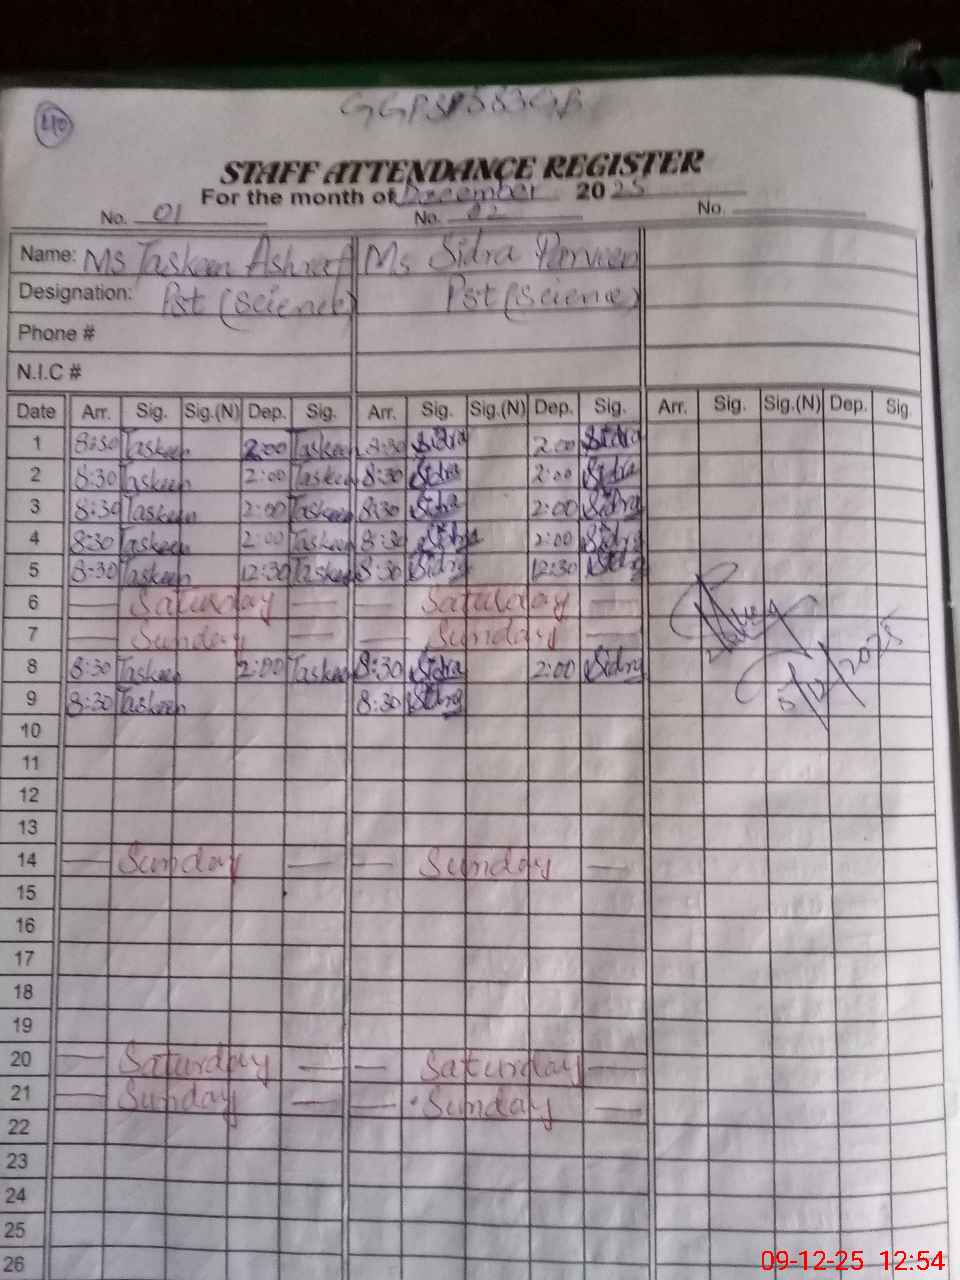 110
GGPS 583GB
STAFF ATTENDANCE REGISTER
For the month of December 2025
No. 01 No. 02 No.
Name: Ms Taskeen Ashraf Ms Sidra Perveen
Designation: Pst (Science) Pst (Science)
Phone #
N.I.C #
Date Arr. Sig. Sig.(N) Dep. Sig. Arr. Sig. Sig.(N) Dep. Sig. Arr. Sig. Sig.(N) Dep. Sig.
1 8:30 Taskeen 2:00 Taskeen 8:30 Sidra 2:00 Sidra
2 8:30 Taskeen 2:00 Taskeen 8:30 Sidra 2:00 Sidra
3 8:30 Taskeen 2:00 Taskeen 8:30 Sidra 2:00 Sidra
4 8:30 Taskeen 2:00 Taskeen 8:30 Sidra 2:00 Sidra
5 8:30 Taskeen 12:30 Taskeen 8:30 Sidra 12:30 Sidra
6 — Saturday — — Saturday —
7 — Sunday — — Sunday —
8 8:30 Taskeen 2:00 Taskeen 8:30 Sidra 2:00 Sidra 5/12/2025
9 8:30 Taskeen 8:30 Sidra
10
11
12
13
14 — Sunday — — Sunday —
15
16
17
18
19
20 — Saturday — — Saturday —
21 — Sunday — — Sunday —
22
23
24
25
26
09-12-25 12:54